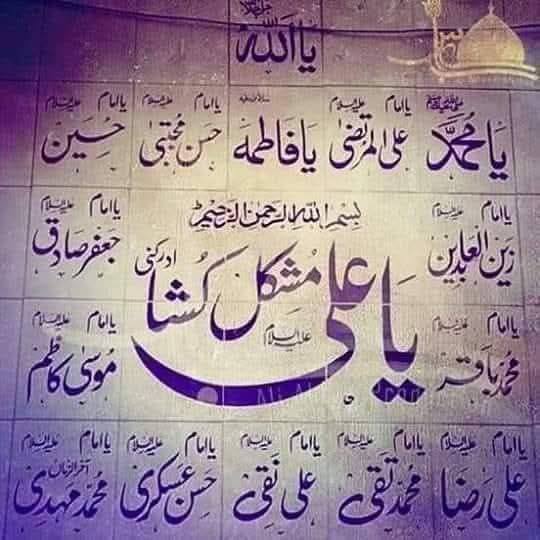 یا اللہ جل جلالہ
یا محمد ﷺ
یا امام علی المرتضیٰ علیہ السلام
یا فاطمہ
یا امام حسن مجتبیٰ علیہ السلام
یا امام حسین علیہ السلام
بسم اللہ الرحمن الرحیم
یا امام زین العابدین علیہ السلام
یا امام جعفر صادق علیہ السلام
یا علی مشکل کشا ادرکنی
علیہ السلام
یا امام محمد باقر علیہ السلام
یا امام موسیٰ کاظم علیہ السلام
یا امام علی رضا علیہ السلام
یا امام محمد تقی علیہ السلام
یا امام علی نقی علیہ السلام
یا امام حسن عسکری علیہ السلام
یا امام آخر الزمان محمد مہدی علیہ السلام